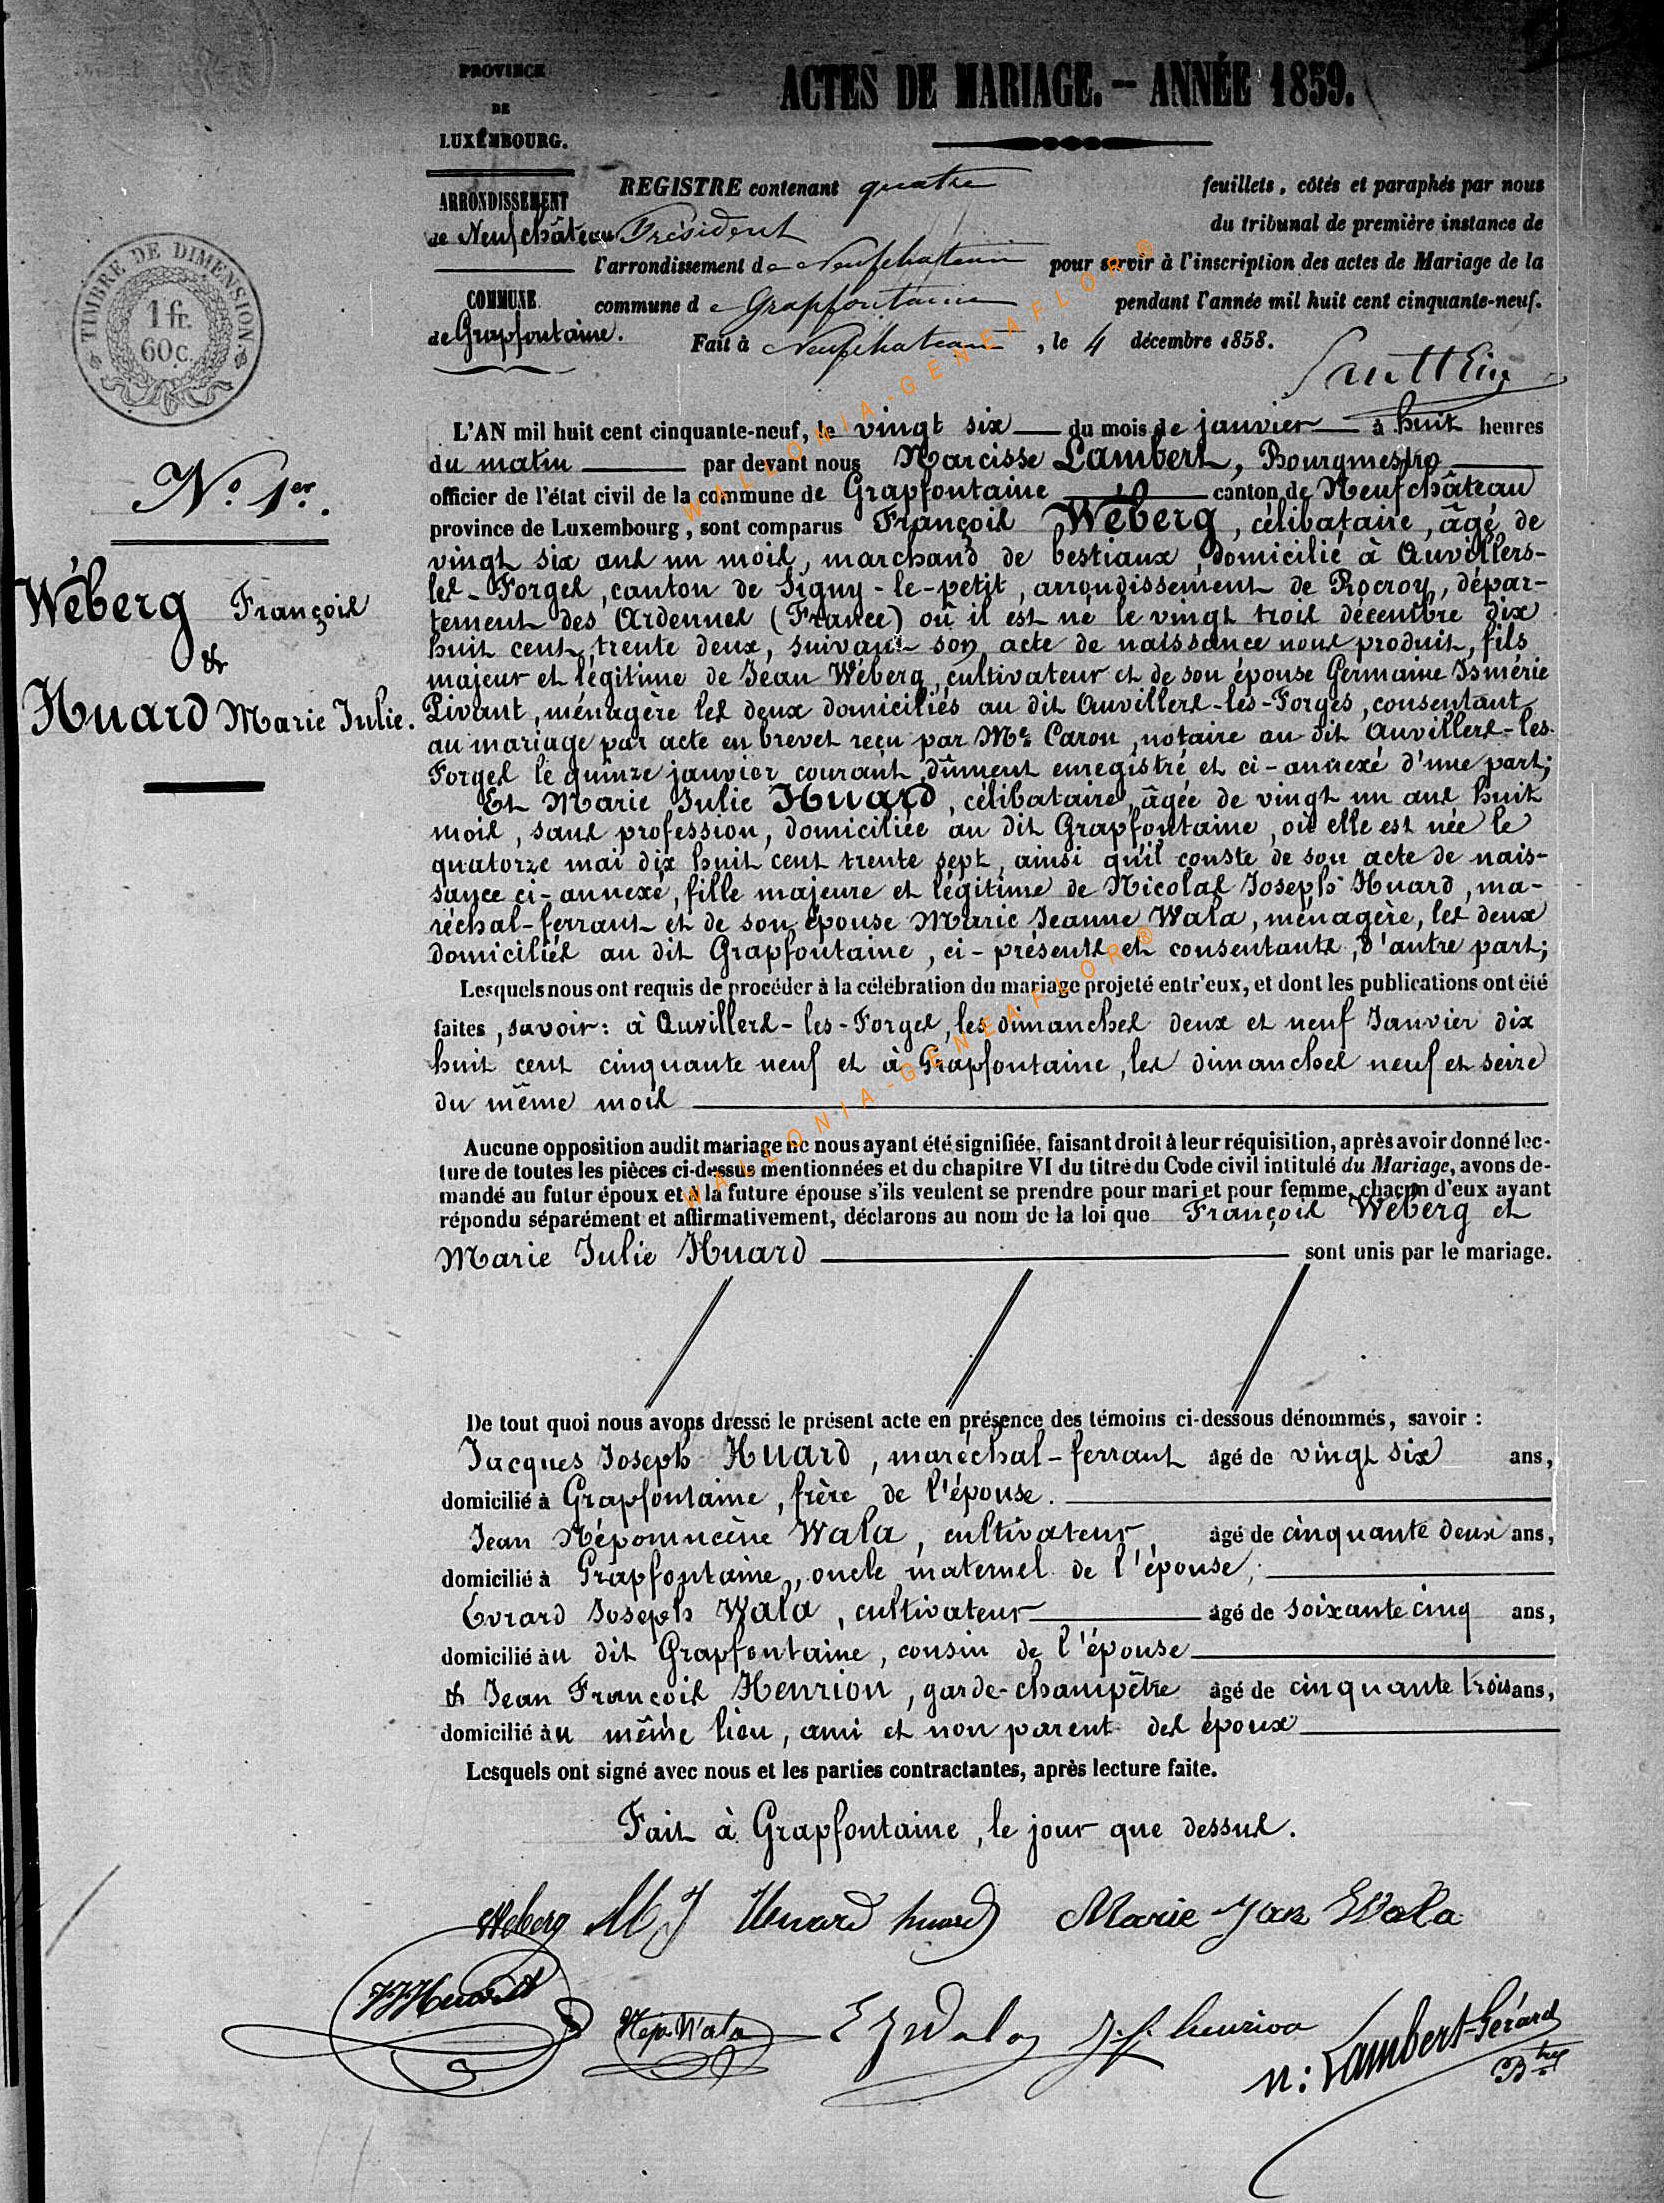 PROVINCE
DE
LUXEMBOURG.
ARRONDISSEMENT
de Neufchâteau
COMMUNE
de Grapfontaine.
ACTES DE MARIAGE. — ANNÉE 1859.
REGISTRE contenant quatre feuillets, côtés et paraphés par nous
Président du tribunal de première instance de
l'arrondissement de Neufchateau pour servir à l'inscription des actes de Mariage de la
commune de Grapfontaine pendant l'année mil huit cent cinquante-neuf.
Fait à Neufchateau, le 4 décembre 1858.
TIMBRE DE DIMENSION
1 fr.
60 c.
N° 1er.
Wéberg François
&
Huard Marie Julie.
L'AN mil huit cent cinquante-neuf, le vingt six du mois de janvier à huit heures
du matin par devant nous Narcisse Lambert, Bourgmestre
officier de l'état civil de la commune de Grapfontaine canton de Neufchâteau
province de Luxembourg, sont comparus François Wéberg, célibataire, âgé de
vingt six ans un mois, marchand de bestiaux, domicilié à Auvillers-
les-Forges, canton de Signy-le-petit, arrondissement de Rocroy, dépar-
tement des Ardennes (France) où il est né le vingt trois décembre dix
huit cent trente deux, suivant son acte de naissance nous produit, fils
majeur et légitime de Jean Wéberg, cultivateur et de son épouse Germaine Ismérie
Pivant, ménagère les deux domiciliés au dit Auvillers-les-Forges, consentant
au mariage par acte en brevet reçu par Me Caron, notaire au dit Auvillers-les-
Forges le quinze janvier courant, dûment enregistré et ci-annexé d'une part;
Et Marie Julie Huard, célibataire, âgée de vingt un ans huit
mois, sans profession, domiciliée au dit Grapfontaine, où elle est née le
quatorze mai dix huit cent trente sept, ainsi qu'il conste de son acte de nais-
sance ci-annexé, fille majeure et légitime de Nicolas Joseph Huard, ma-
réchal-ferrant et de son épouse Marie Jeanne Wala, ménagère, les deux
domiciliés au dit Grapfontaine, ci-présents et consentants, d'autre part;
Lesquels nous ont requis de procéder à la célébration du mariage projeté entr'eux, et dont les publications ont été
faites, savoir: à Auvillers-les-Forges, les dimanches deux et neuf Janvier dix
huit cent cinquante neuf et à Grapfontaine, les dimanches neuf et seize
du même mois
Aucune opposition audit mariage ne nous ayant été signifiée, faisant droit à leur réquisition, après avoir donné lec-
ture de toutes les pièces ci-dessus mentionnées et du chapitre VI du titre du Code civil intitulé du Mariage, avons de-
mandé au futur époux et à la future épouse s'ils veulent se prendre pour mari et pour femme, chacun d'eux ayant
répondu séparément et affirmativement, déclarons au nom de la loi que François Wéberg et
Marie Julie Huard sont unis par le mariage.
De tout quoi nous avons dressé le présent acte en présence des témoins ci-dessous dénommés, savoir :
Jacques Joseph Huard, maréchal-ferrant âgé de vingt six ans,
domicilié à Grapfontaine, frère de l'épouse.
Jean Népomucène Wala, cultivateur, âgé de cinquante deux ans,
domicilié à Grapfontaine, oncle maternel de l'épouse,
Evrard Joseph Wala, cultivateur âgé de soixante cinq ans,
domicilié au dit Grapfontaine, cousin de l'épouse
& Jean François Henrion, garde-champêtre âgé de cinquante trois ans,
domicilié au même lieu, ami et non parent des époux
Lesquels ont signé avec nous et les parties contractantes, après lecture faite.
Fait à Grapfontaine, le jour que dessus.
Weberg M J Huard huard Marie Jan Wala
JJHuard Nép. Wala E J Wala J. f. henrion n: Lambert-Gérard
Btre
WALLONIA-GENEAFLOR®
WALLONIA-GENEAFLOR®